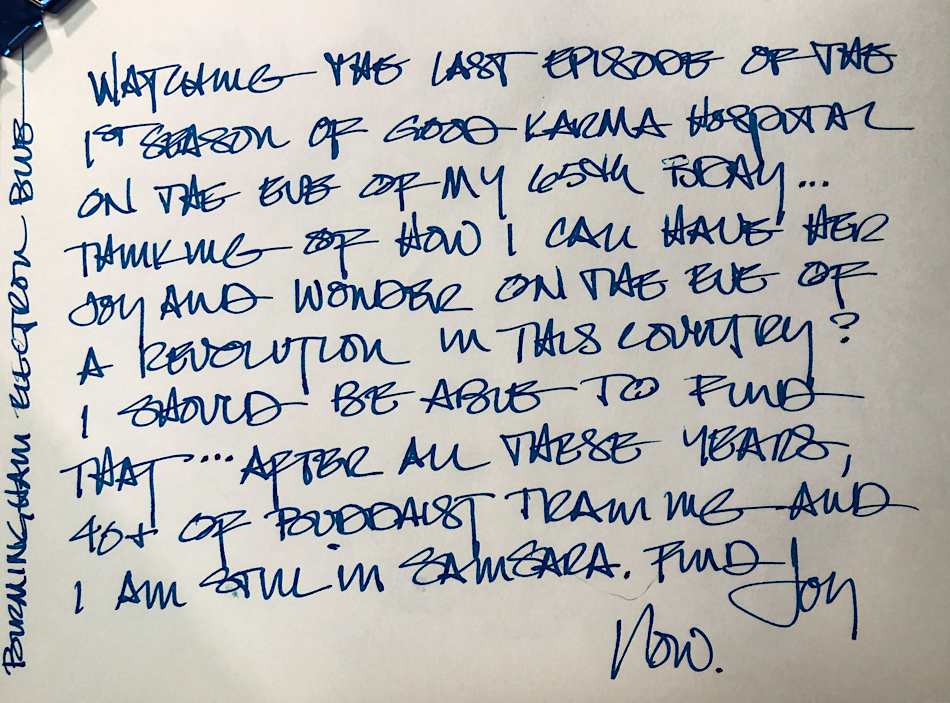 WATCHING THE LAST EPISODE OF THE
1ST SEASON OF GOOD KARMA HOSPITAL
ON THE EVE OF MY 65TH BDAY...
THINKING OF HOW I CAN HAVE HER
JOY AND WONDER ON THE EVE OF
A REVOLUTION IN THIS COUNTRY?
I SHOULD BE ABLE TO FIND
THAT... AFTER ALL THESE YEARS,
40+ OF BUDDHIST TRAINING AND
I AM STILL IN SAMSARA. FIND JOY
NOW.
BIRMINGHAM ELECTRON BLUE